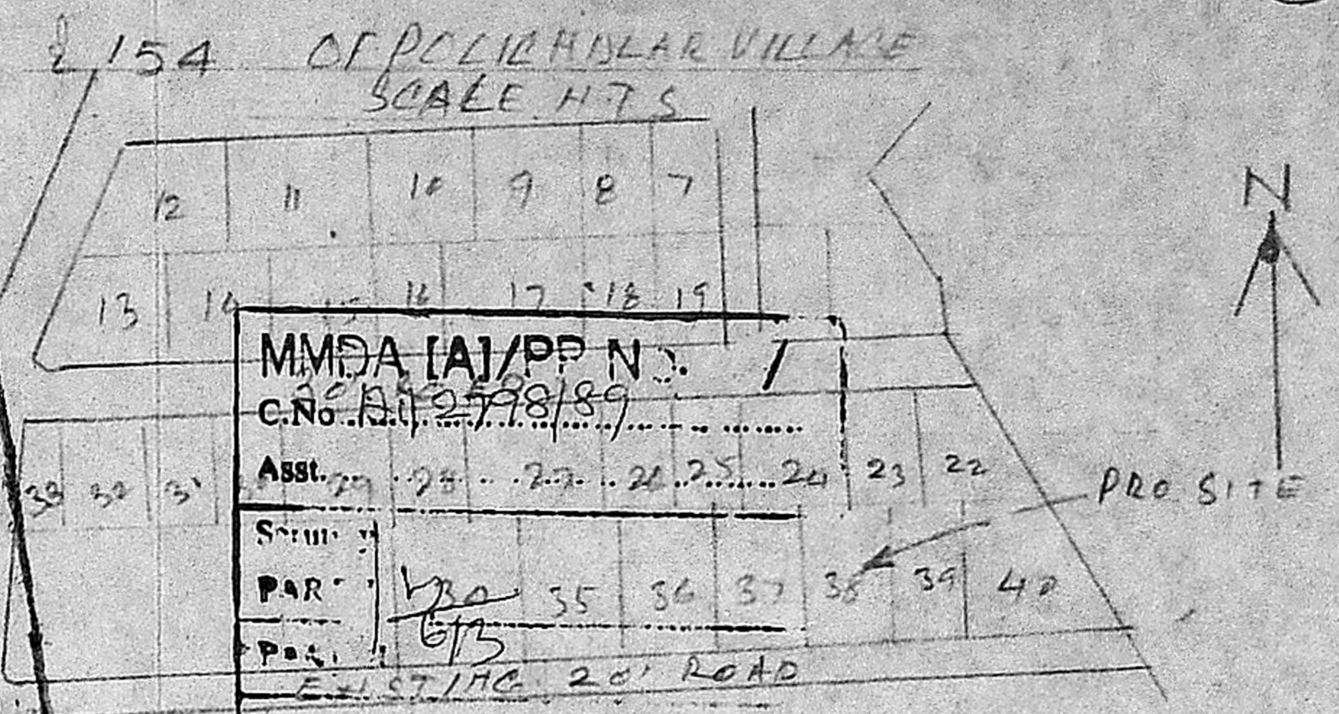 & 154 OF POLICHALAR VILLAGE
SCALE N.T.S
N
12 11 10 9 8 7
13 14 15 16 17 18 19
MMDA [A]/PP No. /
C.No 2798/89
Asst.
33 32 31 29 28 27 26 25 24 23 22
PRO. SITE
PAR
35 36 37 38 39 40
6/3
EXISTING 20' ROAD